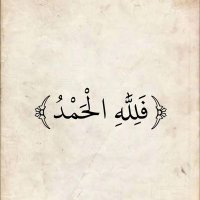 ﴿فَلِلَّهِ الْحَمْدُ﴾